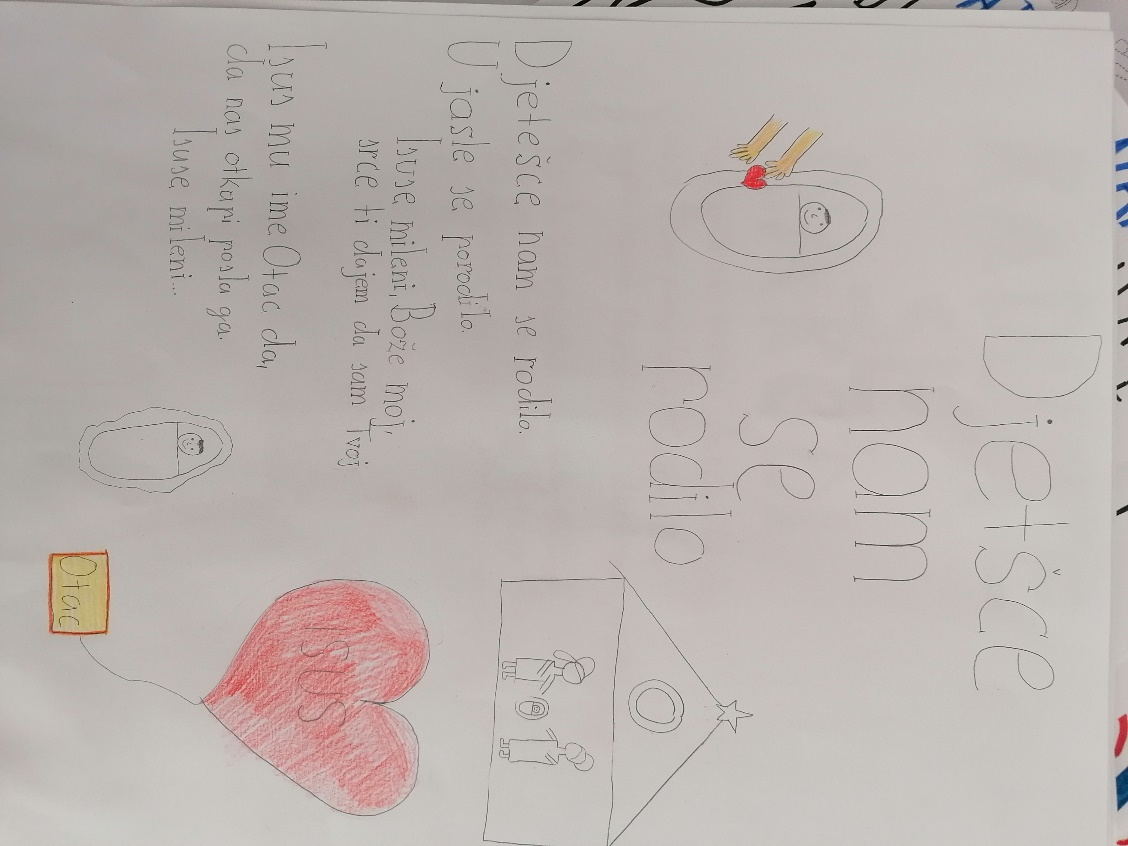 Djetšce
nam
se
rodilo
Djetešce nam se rodilo.
U jasle se porodilo.
Isuse mileni, Bože moj,
srce ti dajem da sam Tvoj
Isus mu ime Otac da,
da nas otkupi posla ga.
Isuse mileni...
ISUS
Otac